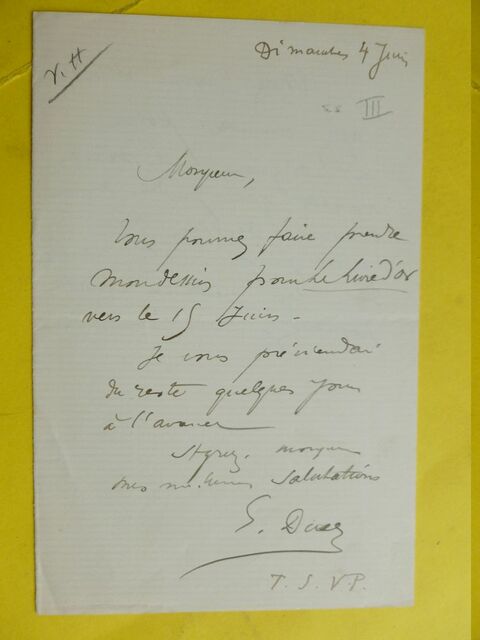 Dimanche 4 Juin
V. H
III
Monsieur,
Vous pourrez faire prendre
mon dessin pour Le Livre d'or
vers le 15 Juin -
Je vous préviendrai
du reste quelques jours
à l'avance
Agréez, monsieur
mes meilleures salutations
E. Duez
T. S. V. P.